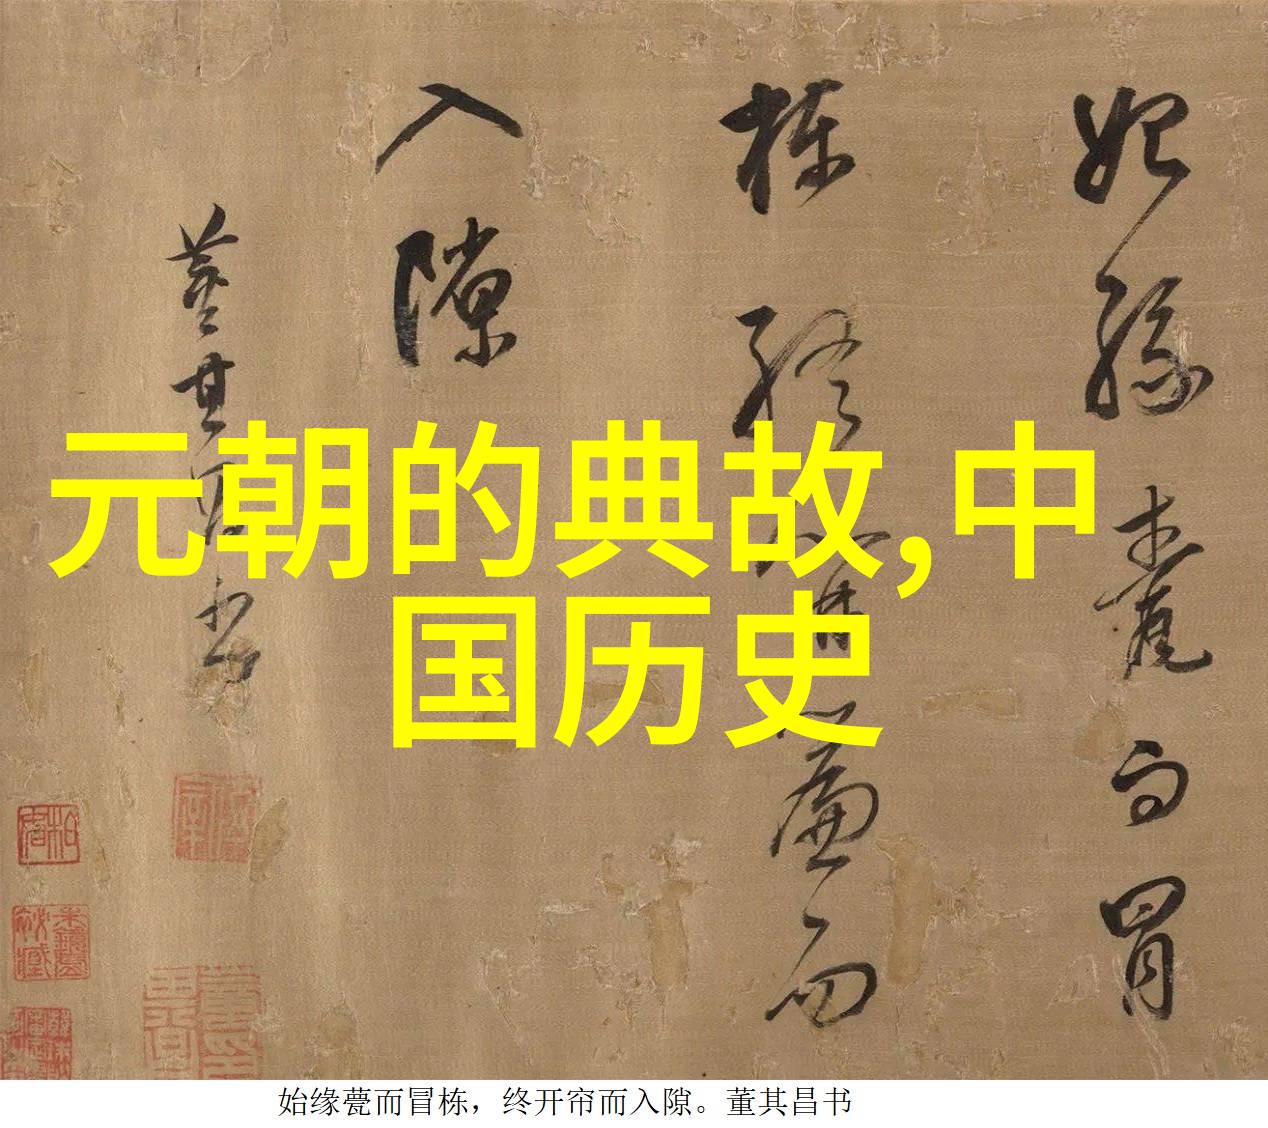 元朝的典故,中
国历史
始緣甍而冒
棟終簾而
入隙
董其昌書
始缘甍而冒栋，终开帘而入隙。董其昌书